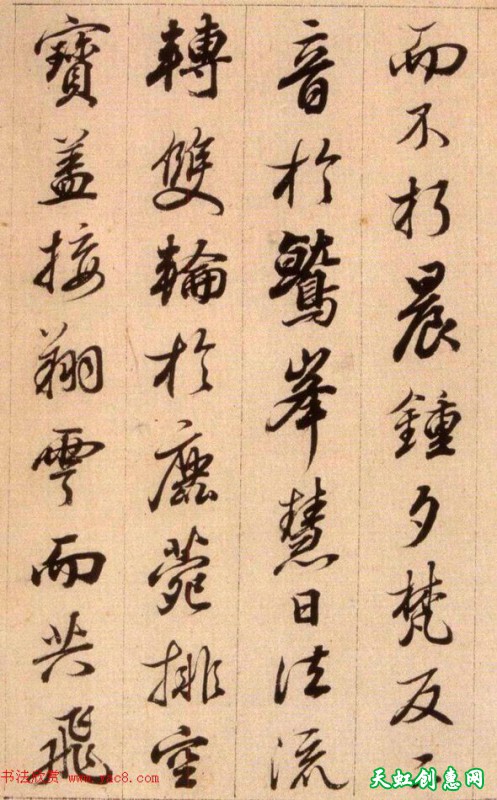 而不朽晨鍾夕梵交二
音於鷲峯慧日法流
轉雙輪於鹿菀排空
寶盖接翔雲而共飛
书法欣赏 www.yac8.com
天虹创意网